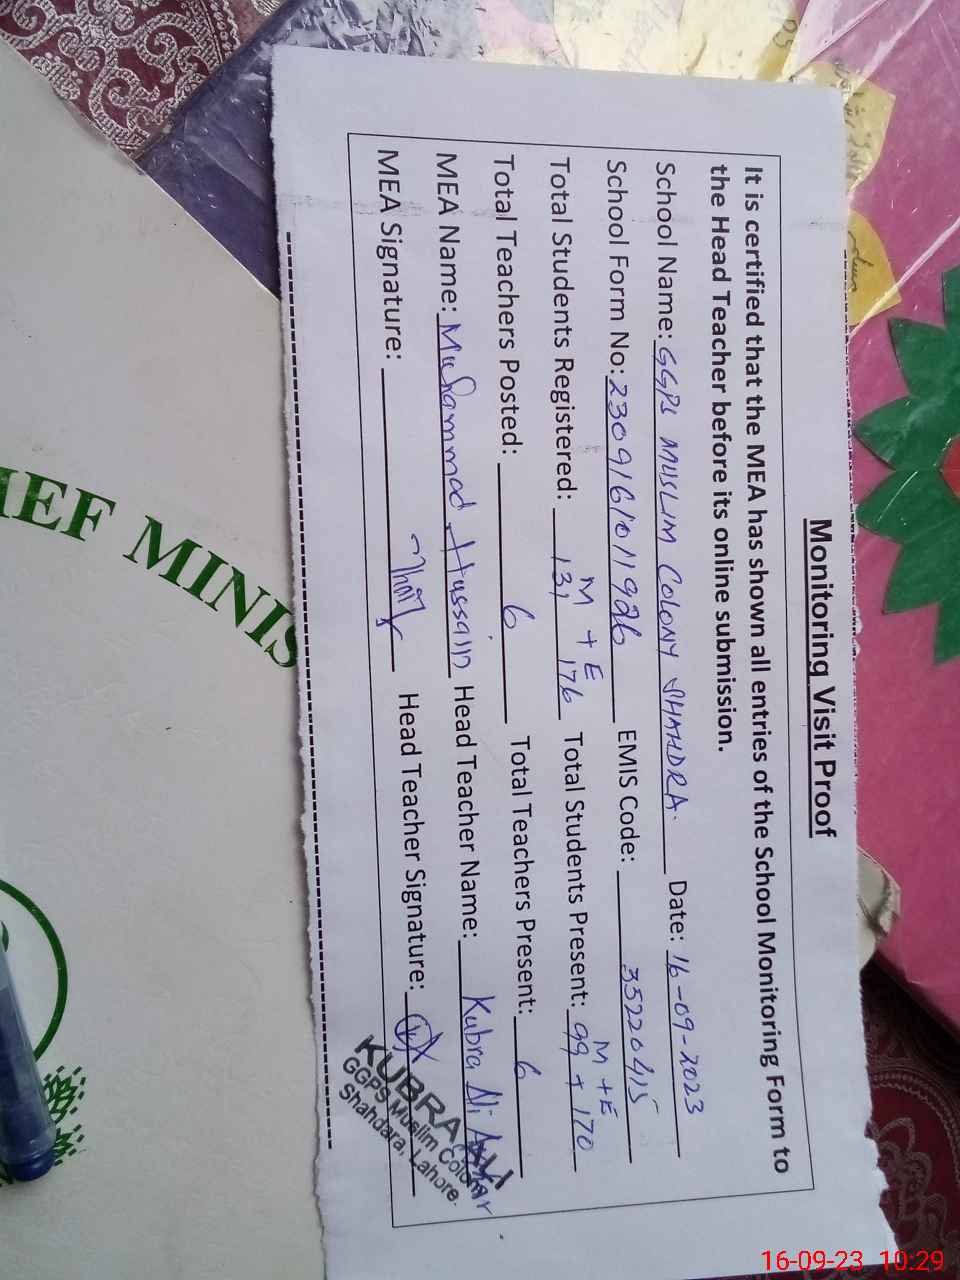 Monitoring Visit Proof
It is certified that the MEA has shown all entries of the School Monitoring Form to
the Head Teacher before its online submission.
School Name: GGPS MUSLIM COLONY SHAHDRA. Date: 16-09-2023
School Form No: 230916101926 EMIS Code: 35220415
M + E M + E
Total Students Registered: 131 176 Total Students Present: 99 + 170
Total Teachers Posted: 6 Total Teachers Present: 6
MEA Name: Muhammad Hussain Head Teacher Name: Kubra Ali Asghar
MEA Signature: Head Teacher Signature:
KUBRA ALI
GGPS Muslim Colony
Shahdara, Lahore.
IEF MINIS
16-09-23 10:29